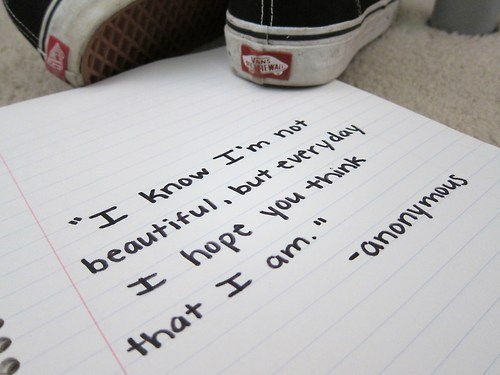 VANS
"I know I'm not
beautiful, but everyday
I hope you think
that I am."
-anonymous